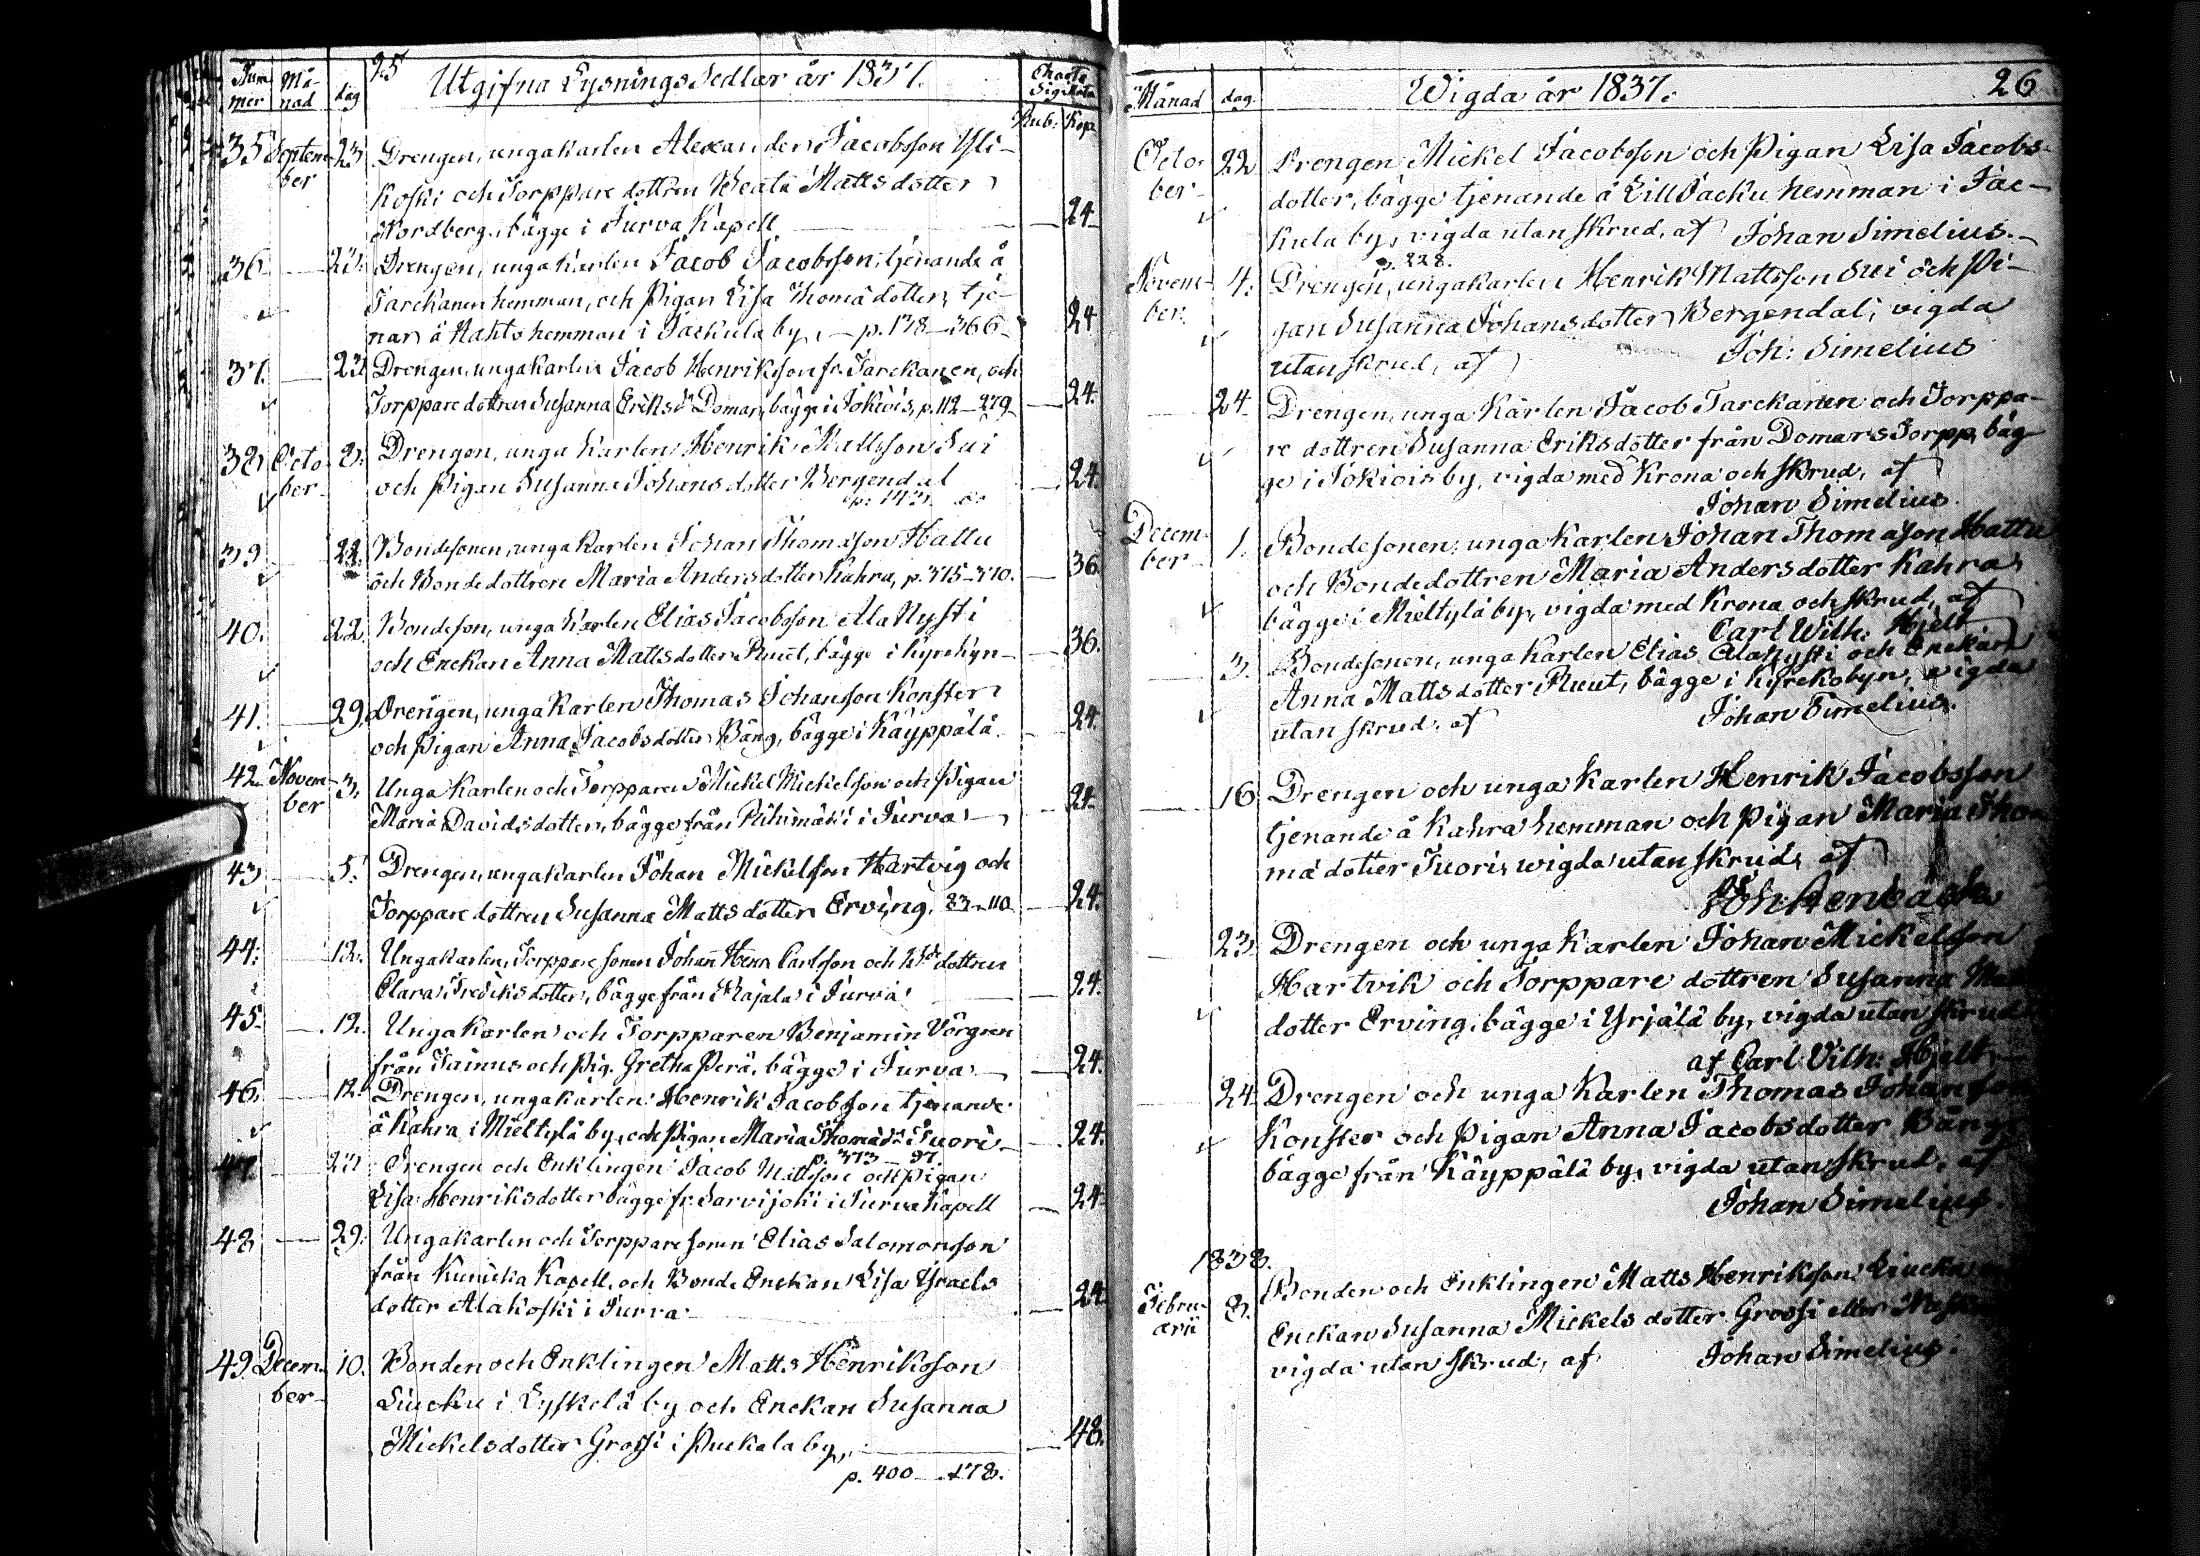 25
Num Må- dag Utgifna Lysnings Sedlar år 1837. Charta
mer nad Sigillata
Rub: Kop
35 Septem- 23 Drengen, unga karlen Alexander Jacobsson Yli-
ber koski och Torppare dottren Beata Matts dotter
Nordberg, bägge i Jurva Kapell 24
36 23. Drengen, unga karlen Jacob Jacobsson, tjenande å
Tarckanen hemman, och Pigan Lisa Thomä dotter, tje-
nar å hemman i Jackula by, p. 138-366 24
37. 23 Drengen, unga karlen Jacob Henriksson fr. Tarckanen, och
Torppare dottren Susanna Eriks dr Domar, bägge i Jokiois, p. 112-279 24.
38 Octo- 8. Drengen, unga karlen Henrik Mattsson Sui
ber och Pigan Susanna Johans dotter Bergendal 24.
39 22. Bondesonen, unga karlen Johan Thomasson Hattu
och Bondedottren Maria Anders dotter Kahra, p. 375-370. 36
40. 22 Bondeson, unga karlen Elias Jacobsson Ala Nysti
och Enckan Anna Matts dotter Ruut, bägge i Kyrckbyn 36.
41. 29. Drengen, unga karlen Thomas Johansson Konster
och Pigan Anna Jacobsdotter Bäng, bägge i Käyppälä. 24.
42 Novem- 3. Unga karlen och Torpparen Mickel Mickelsson och Pigan
ber Maria Davids dotter, bägge från Rihimäki i Jurva 24
43 5. Drengen, unga karlen Johan Mickelsson Hartvig och
Torppare dottren Susanna Matts dotter Erving, 83-110 24.
44. 12. Unga karlen, Torppare sonen Johan Henr. Carlsson och dottren
Clara Fredriks dotter, bägge från Rajala i Jurva 24.
45. 12. Unga karlen och Torpparen Benjamin Vörgren
från Tainus och Pig. Gretha Perä, bägge i Jurva 24.
46. 12. Drengen, unga karlen Henrik Jacobsson tjenande
å Kahra i Mieltylä by, och Pigan Maria Thomä dr Tuori 24.
p. 373-97.
47 Drengen och Enklingen Jacob Mattsson och Pigan
Lisa Henriksdotter bägge fr. Sarvijoki i Jurva Kapell 24
48 29. Unga karlen och Torppare sonen Elias Salomonsson
från Kapell, och Bonde Enckan Lisa Ysraels
dotter Alakoski i Jurva 24
49. Decem- 10. Bonden och Enklingen Matts Henriksson
ber Liucku i Lyskelä by och Enckan Susanna
Mickelsdotter Grossi i Puckala by, 48.
p. 400-178.
Månad dag. Wigda år 1837. 26
Octo- 22 Drengen Mickel Jacobsson och Pigan Lisa Jacobs-
ber dotter, bägge tjenande å Lill Jacku hemman i Jac-
kula by, vigda utan skrud, af Johan Simelius.
p. 228.
Novem- 4. Drengen, unga karlen Henrik Mattsson Sui och Pi-
ber. gan Susanna Johans dotter Bergendal, vigda
utan skrud, af Joh: Simelius
24. Drengen, unga Karlen Jacob Tarckanen och Torppa-
re dottren Susanna Eriksdotter från Domars Torpp, bäg-
ge i Jokiois by, vigda med Krona och skrud, af
Johan Simelius.
Decem- 1. Bondesonen, unga karlen Johan Thomasson Hattu
ber och Bondedottren Maria Andersdotter Kahra,
bägge i Mieltylä by, vigda med Krona och skrud, af
Carl Wilh: Hjelt
3. Bondesonen, unga karlen Elias Ala Nysti och Enckan
Anna Matts dotter Ruut, bägge i Kyrckobyn, vigda
utan skrud, af Johan Simelius.
16 Drengen och unga karlen Henrik Jacobsson
tjenande å Kahra hemman och pigan Maria Tho-
mä dotter Tuori, wigda utan skrud, af
23. Drengen och unga karlen Johan Mickelsson
Hartvik och Torppare dottren Susanna
dotter Erving, bägge i Yrjälä by, vigda utan skrud
af Carl Vilh: Hjelt
24 Drengen och unga karlen Thomas Johansson
Konster och Pigan Anna Jacobsdotter Bäng
bägge från Käyppälä by, vigda utan skrud, af
Johan Simelius.
1838.
Febru- 8. Bonden och Enklingen Matts Henriksson Liucku
arii Enckan Susanna Mickels dotter Grossi eller
vigda utan skrud, af Johan Simelius.